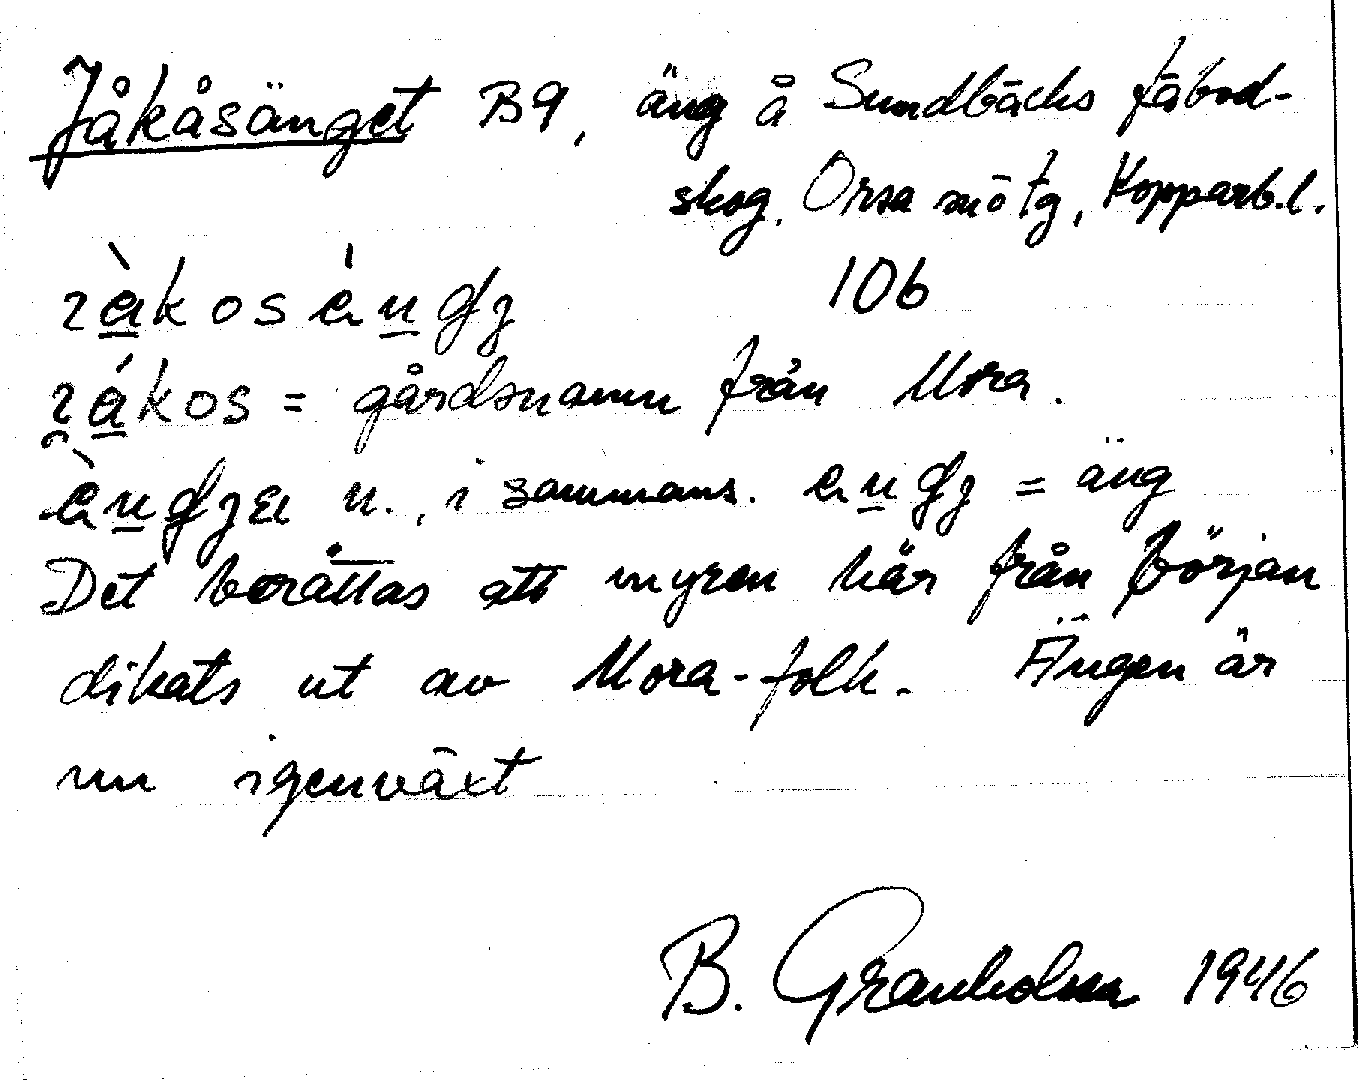 Jåkåsänget B9, äng å Sundbäcks fäbod-
skog, Orsa sn ö tg, Kopparb.l.
106
= gårdsnamn från Mora.
n., i sammans. = äng
Det berättas att myren här från början
dikats ut av Mora-folk. Ängen är
nu igenväxt
B. Granholm 1946